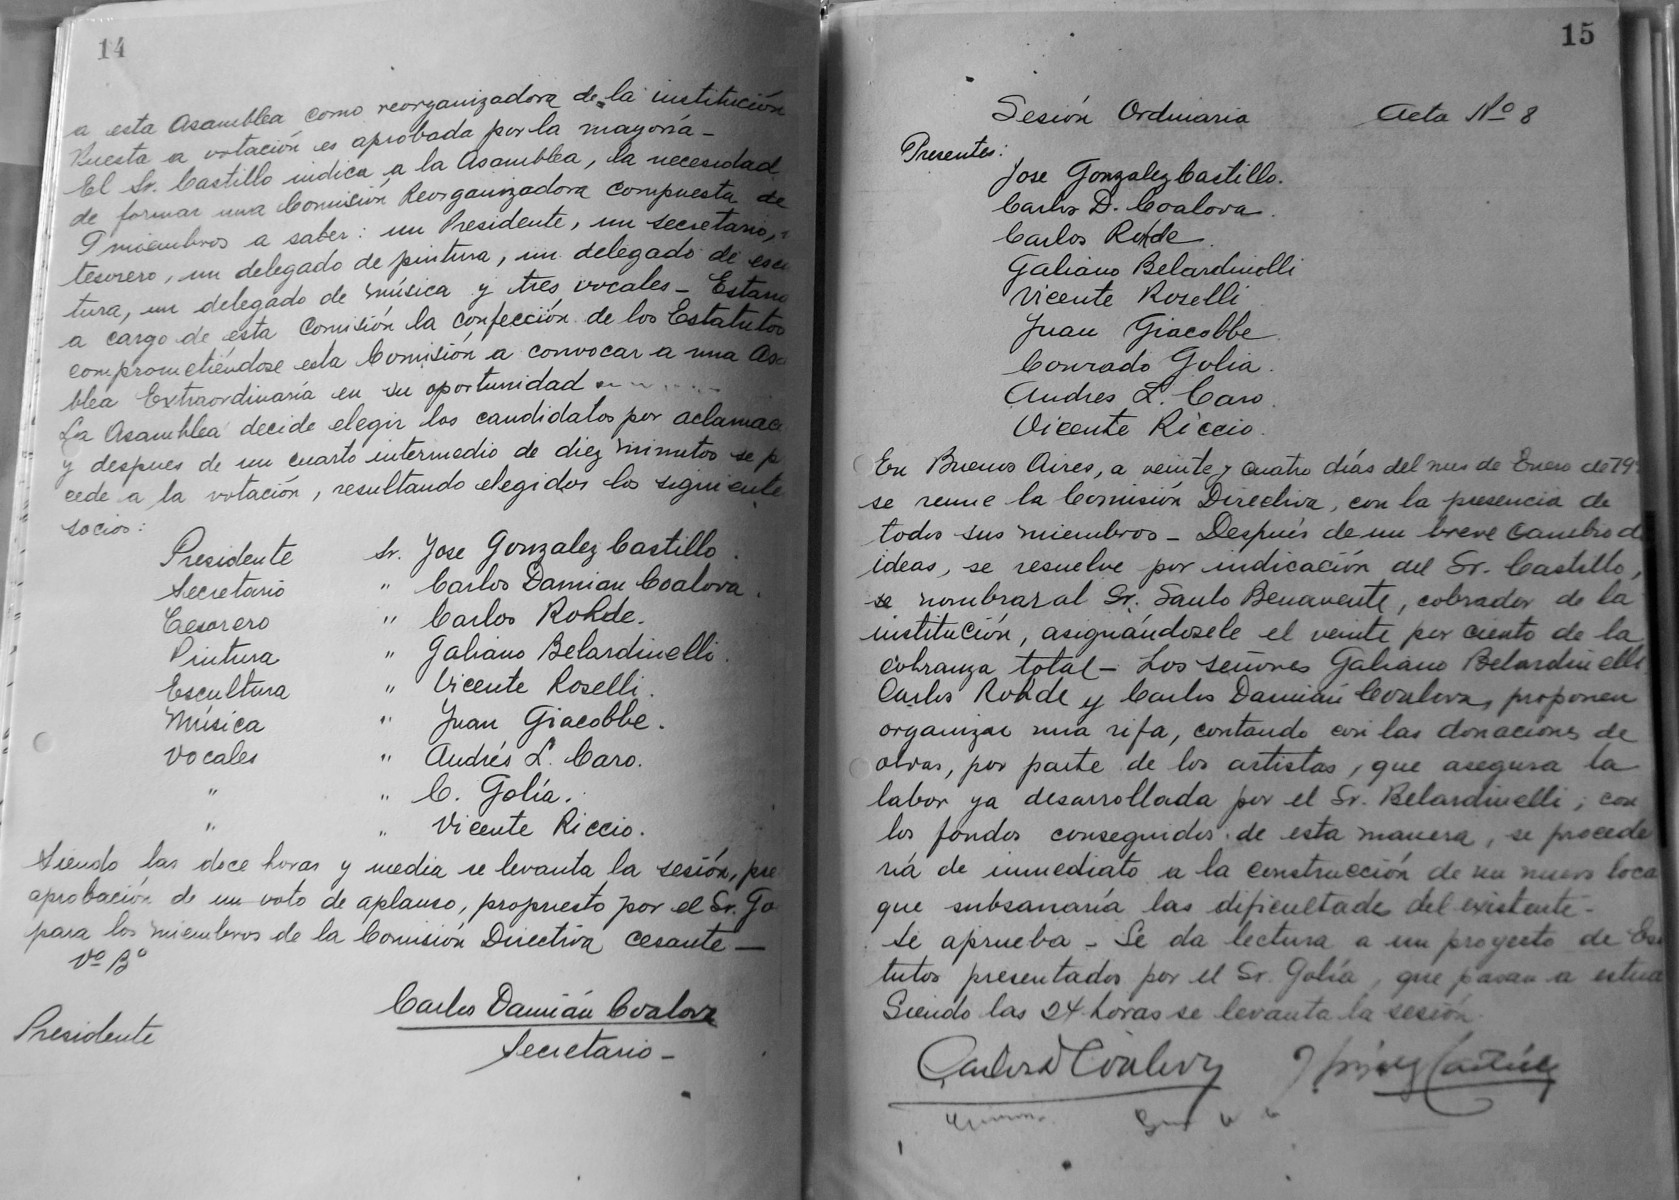 14
a esta Asamblea como reorganizadora de la institución
Puesta a votación es aprobada por la mayoría -
El Sr. Castillo indica a la Asamblea, la necesidad
de formar una Comisión Reorganizadora compuesta de
9 miembros a saber: un Presidente, un secretario,
tesorero, un delegado de pintura, un delegado de escu
tura, un delegado de música y tres vocales - Estan
a cargo de esta Comisión la confección de los Estatutos
comprometiéndose esta Comisión a convocar a una As
blea Extraordinaria en su oportunidad
La Asamblea decide elegir los candidatos por aclamac
y despues de un cuarto intermedio de diez minutos se p
cede a la votación, resultando elegidos los siguiente
socios:
Presidente Sr. Jose Gonzalez Castillo.
Secretario " Carlos Damian Coalova.
Tesorero " Carlos Rohde.
Pintura " Galiano Belardinelli.
Escultura " Vicente Roselli.
Música " Juan Giacobbe.
Vocales " Andrés L. Caro.
" " C. Golía.
" " Vicente Riccio.
Siendo las doce horas y media se levanta la sesión, pre
aprobación de un voto de aplauso, propuesto por el Sr. Go
para los miembros de la Comisión Directiva cesante —
Vº Bº
Carlos Damián Coalova
Presidente
Secretario -
15
Sesión Ordinaria Acta Nº 8
Presentes:
Jose Gonzalez Castillo.
Carlos D. Coalova.
Carlos Rohde.
Galiano Belardinelli
Vicente Roselli
Juan Giacobbe
Conrado Golia.
Andres L. Caro.
Vicente Riccio.
En Buenos Aires, a veinte y cuatro días del mes de Enero de 19
se reune la Comisión Directiva, con la presencia de
todos sus miembros - Después de un breve cambio d
ideas, se resuelve por indicación del Sr. Castillo,
se nombrar al Sr. Saulo Benavente, cobrador de la
institución, asignándosele el veinte por ciento de la
cobranza total - Los señores Galiano Belardinelli
Carlos Rohde y Carlos Damián Coalova, proponen
organizar una rifa, contando con las donaciones de
obras, por parte de los artistas, que asegura la
labor ya desarrollada por el Sr. Belardinelli; con
los fondos conseguidos de esta manera, se procede
rá de inmediato a la construcción de un nuevo loca
que subsanaría las dificultades del existente -
Se aprueba - Se da lectura a un proyecto de Es
tutos presentados por el Sr. Golía, que pasan a estu
Siendo las 24 horas se levanta la sesión.
Carlos D Coalova J González Castillo